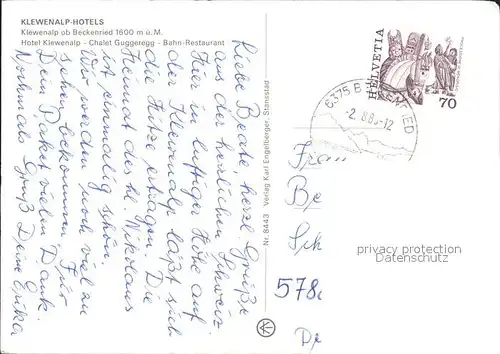 KLEWENALP-HOTELS
Klewenalp ob Beckenried 1600 m ü. M.
Hotel Klewenalp - Chalet Guggeregg - Bahn-Restaurant
Liebe Beate, herzl. Grüße
aus der herrlichen Schweiz.
Hier in luftiger Höhe auf
der Klewenalp läßt sich
die Hitze ertragen. Die
Heimat des hl. Nikolaus
ist einmalig schön.
Wir werden noch viel zu
sehen bekommen. Für
Dein Paket vielen Dank.
Nochmals Gruß Deine Erika
Nr. 8443 Verlag Karl Engelberger, Stansstad
HELVETIA
70
6375 B ED
-2. 8.8 -12
Frau
Be
Sch
578
De
privacy protection
Datenschutz